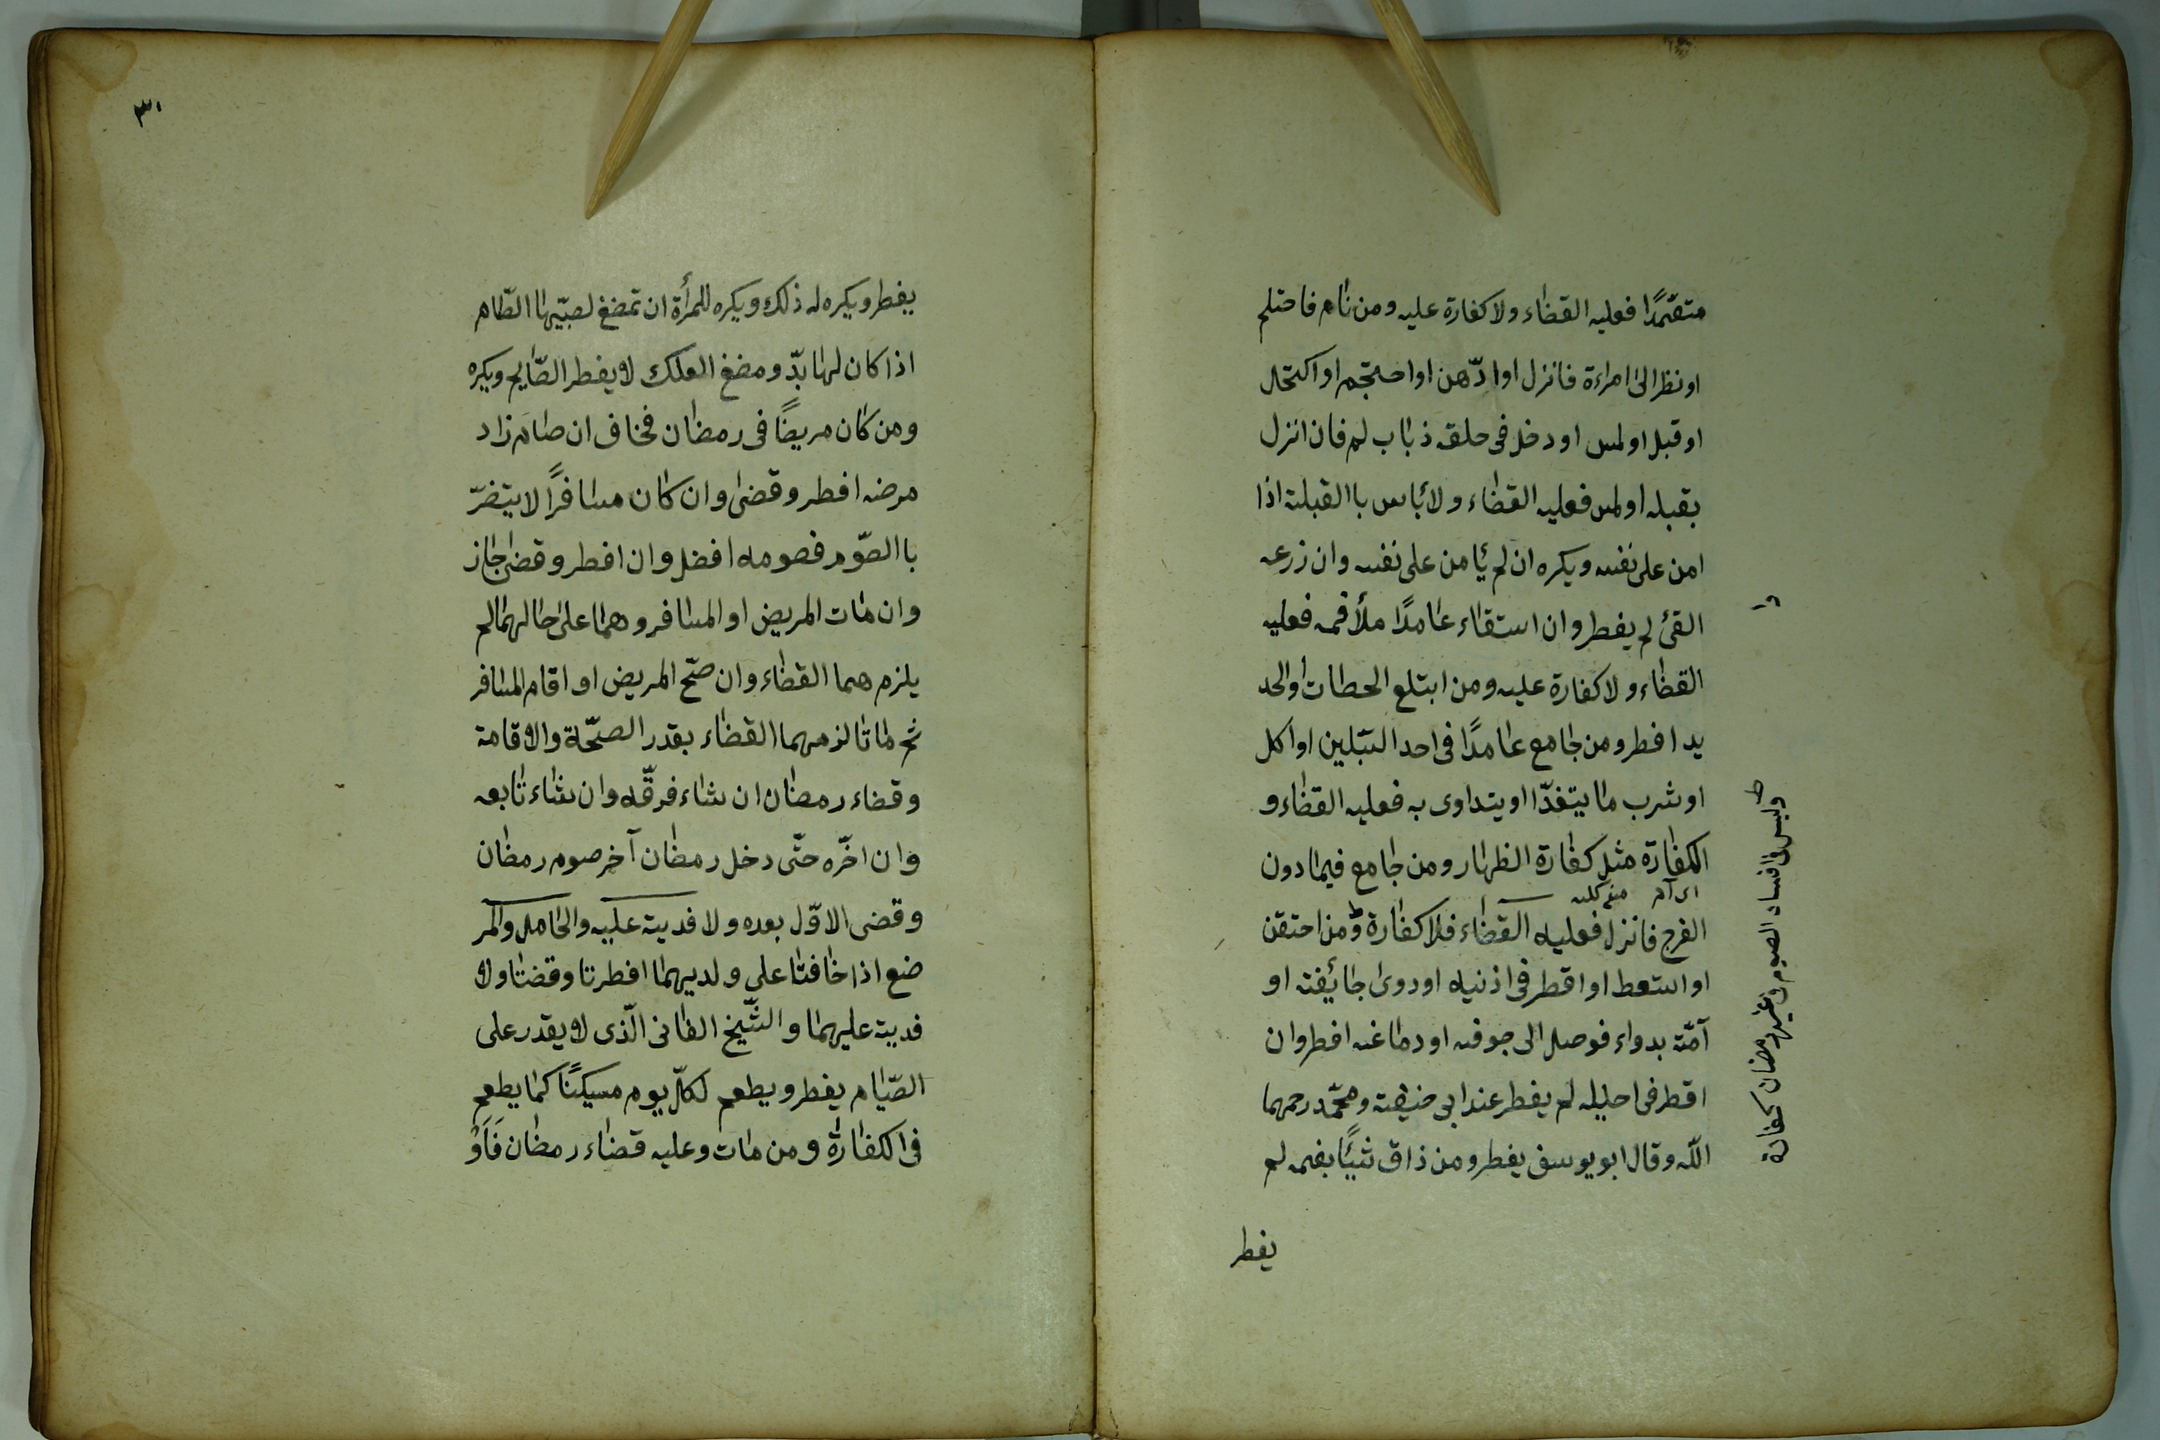 متقمدًا فعليه القضاء ولا كفارة عليه ومن نام فاحتلم
او نظر الى امراءة فانزل او ادّهن او احتجم او اكتحل
او قبل او لمس او دخل فى حلقه ذباب لم فان انزل
بقبله او لمس فعليه القضاء ولا بأس باالقبلة اذا
امن على نفسه ويكره ان لم يأمن على نفسه وان زرعه
القئ لم يفطر وان استقاء عامدًا ملأ فمه فعليه
القضاء ولا كفارة عليه ومن ابتلع الحطات او الحد
يد افطر ومن جامع عامدًا فى احد السبلين او اكل
او شرب ما يتغدّا او يتداوى به فعليه القضاء و
الكفارة مثل كفارة الظهار ومن جامع فيما دون
الفرج فانزل فعليه القضاء فلا كفارة ومن احتقن
او استعط او اقطر فى اذنيه او دوى جائفة او
آمّة بدواء فوصل الى جوفه او دماغه افطر وان
اقطر فى احليله لم يفطر عند ابى حنيفة ومحمّد رحمهما
اللّه وقال ابو يوسف يفطر ومن ذاق شيئًا بفمه لم
يفطر
وليس فى افساد الصوم فى غير رمضان كفارة
٣٠
يفطر ويكره له ذلك ويكره للمرأة ان تمضغ لصبيّها الطّعام
اذا كان لها بدّ ومضغ العلك لا يفطر الصّايم ويكره
ومن كان مريضًا فى رمضان فخاف ان صام زاد
مرضه افطر وقضى وان كان مسافرًا لا يتضرّ
باالصّوم فصومه افضل وان افطر وقضى جاز
وان مات المريض او المسافر وهما على حالهما لم
يلزم هما القضاء وان صحّ المريض او اقام المسافر
ثم ماتا لزمهما القضاء بقدر الصحّة والاقامة
وقضاء رمضان ان شاء فرقّه وان شاء تابعه
وان اخّره حتّى دخل رمضان آخر صوم رمضان
وقضى الاوّل بعده ولا فدية عليه والحامل والمر
ضع اذا خافتا على ولديهما افطرتا وقضتا ولا
فدية عليهما والشّيخ الفانى الّذى لا يقدر على
الصّيام يفطر ويطعم لكلّ يوم مسيكنًا كما يطعم
فى الكفارة ومن مات وعليه قضاء رمضان فَاَوْ